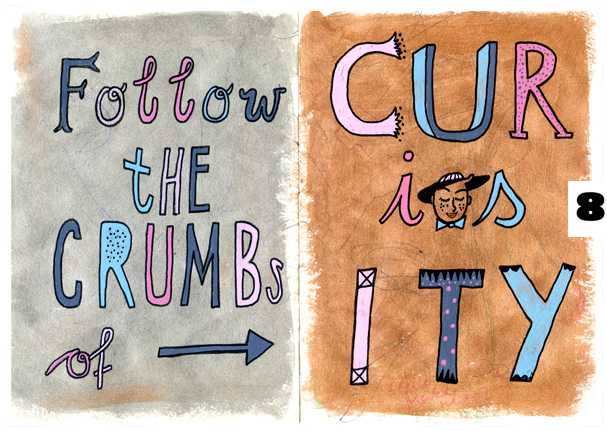 Follow
the
CRUMBs
of
CUR
ios
ITY
8